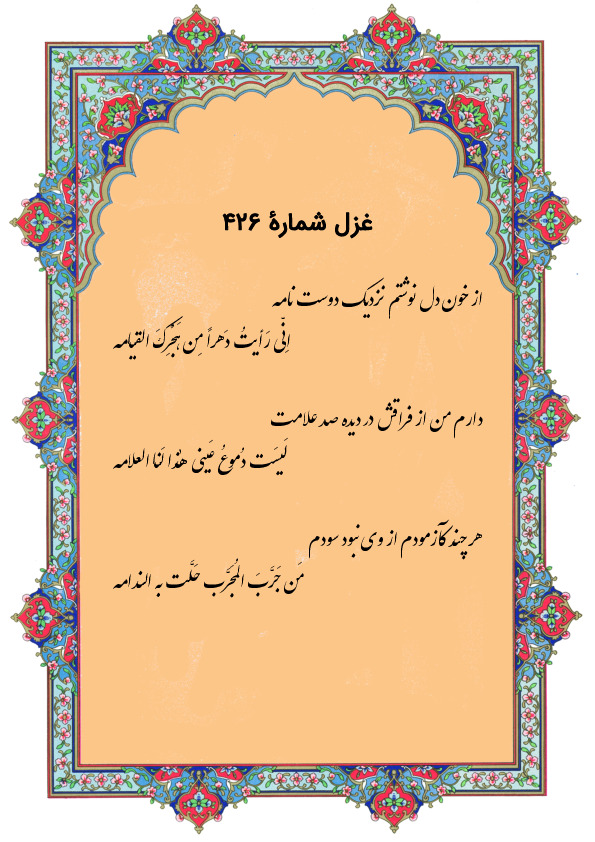 غزل شمارهٔ ۴۲۶
از خون دل نوشتم نزدیک دوست نامه
اِنّی رَأیتُ دَهراً مِن هَجْرِکَ القیامه
دارم من از فراقش در دیده صد علامت
لَیسَت دُموعُ عَینی هذا لَنا العلامه
هر چند کآزمودم از وی نبود سودم
مَن جَرَّبَ المُجَرَّب حَلَّت به الندامه